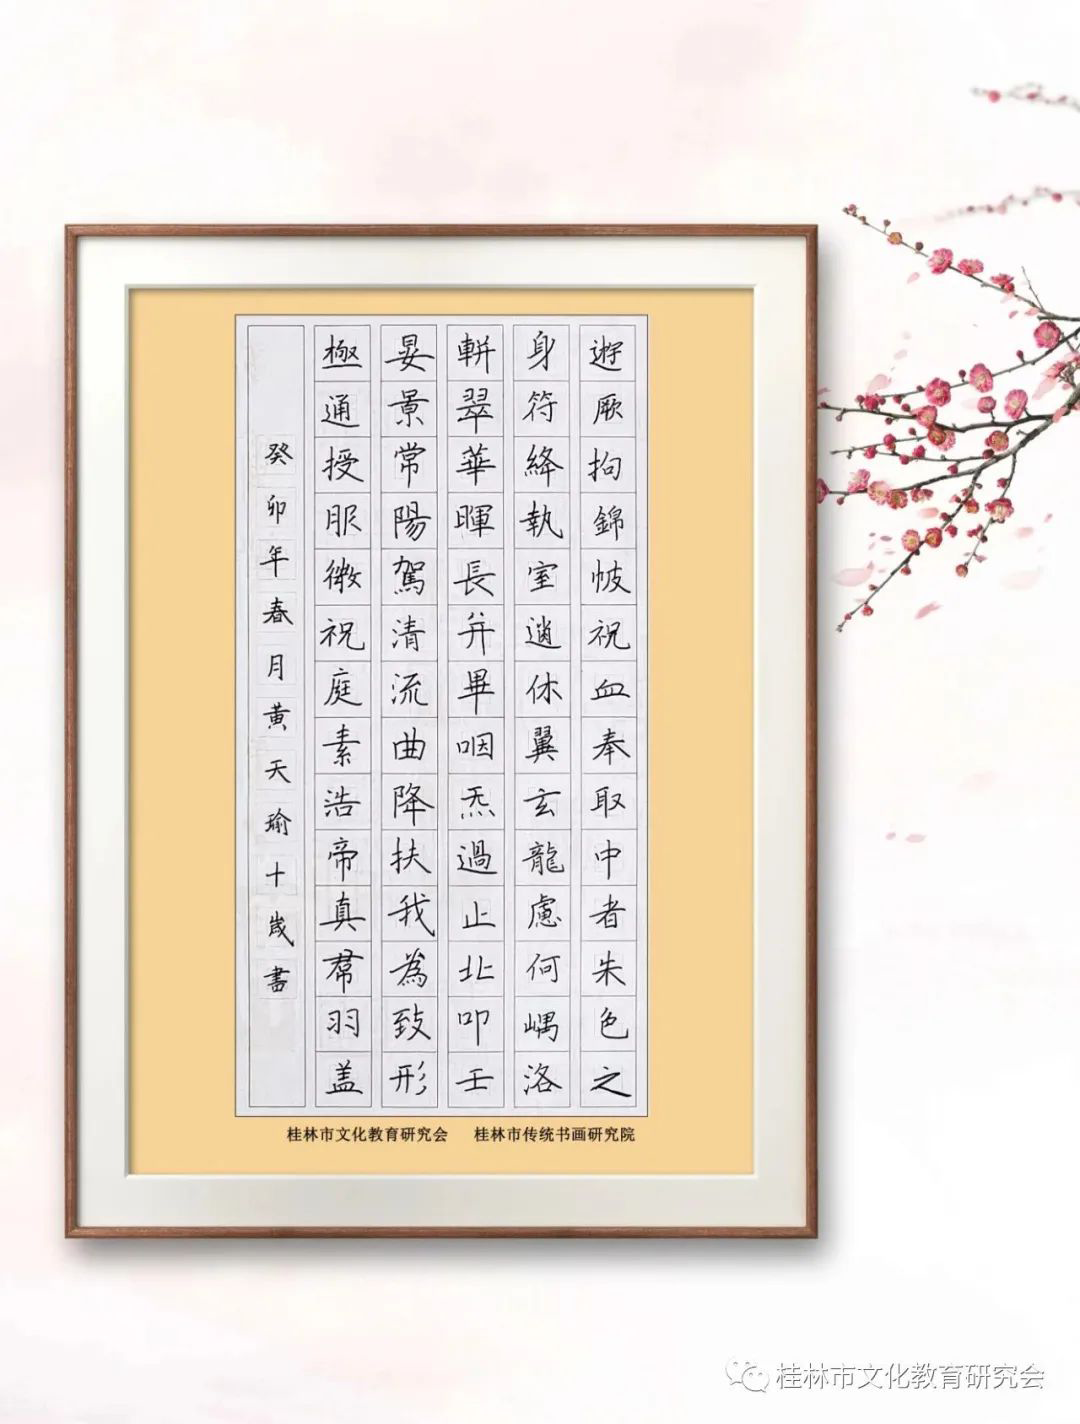 遊厥拘錦帔祝血奉取中者朱色之
身符絳執室逍休翼玄龍慮何嵎洛
軿翠華暉長弁畢咽炁過止北叩壬
晏景常陽駕清流曲降扶我為致形
極通授服微祝庭素浩帝真帬羽盖
癸卯年春月黄天瑜十歲書
桂林市文化教育研究会 桂林市传统书画研究院
桂林市文化教育研究会